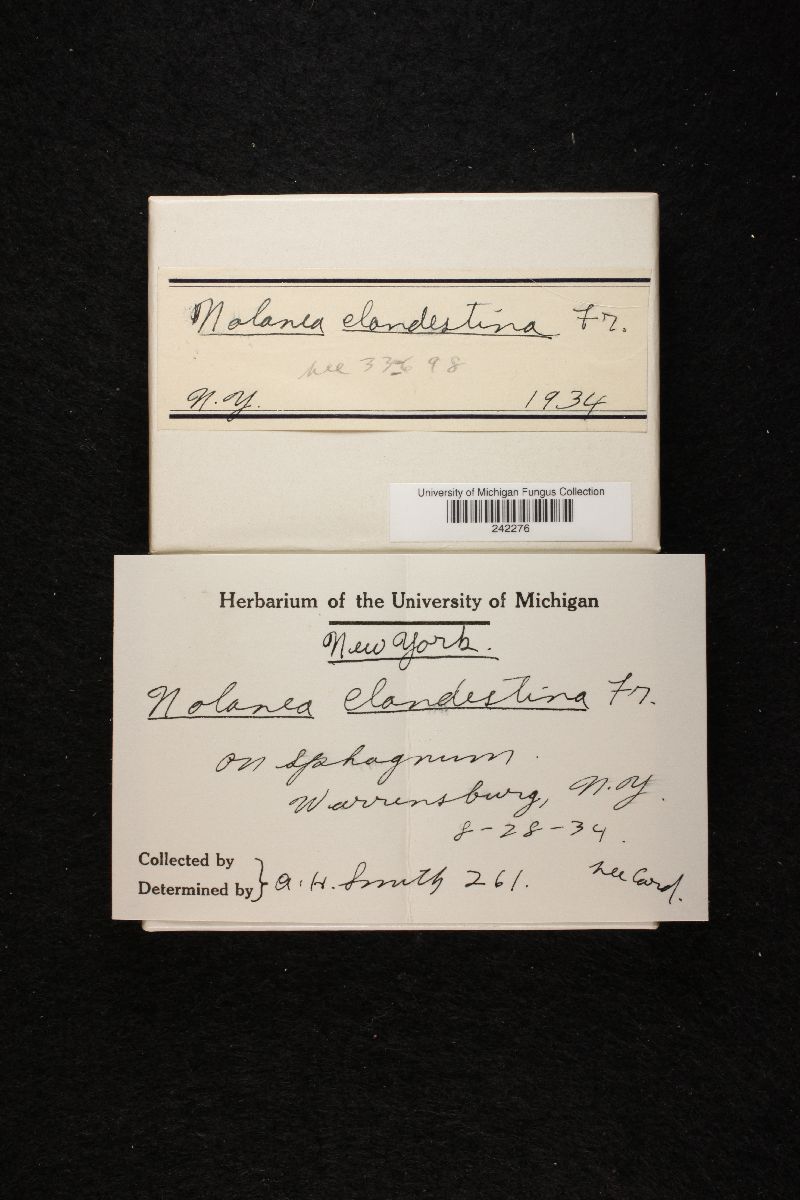 Nolanea clandestina Fr.
see 33698
N.Y. 1934
University of Michigan Fungus Collection
242276
Herbarium of the University of Michigan
New York.
Nolanea clandestina Fr.
on sphagnum.
Warrensburg, N.Y.
8-28-34.
Collected by
Determined by } A. H. Smith 261. see Card.